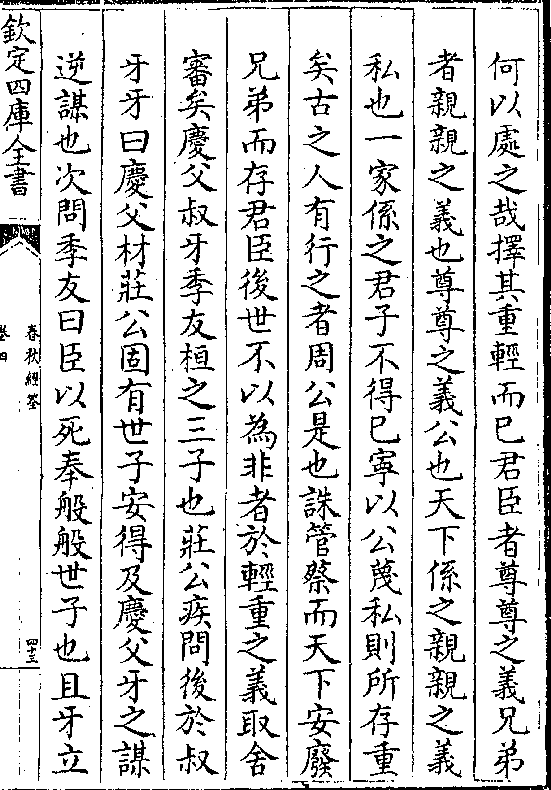 何以處之哉擇其重輕而已君臣者尊尊之義兄弟
者親親之義也尊尊之義公也天下係之親親之義
私也一家係之君子不得已寧以公蔑私則所存重
矣古之人有行之者周公是也誅管蔡而天下安廢
兄弟而存君臣後世不以為非者於輕重之義取舍
審矣慶父叔牙季友桓之三子也莊公疾問後於叔
牙牙曰慶父材莊公固有世子安得及慶父牙之謀
逆謀也次問季友曰臣以死奉般般世子也且牙立
欽定四庫全書
春秋經筌
卷四
四十三